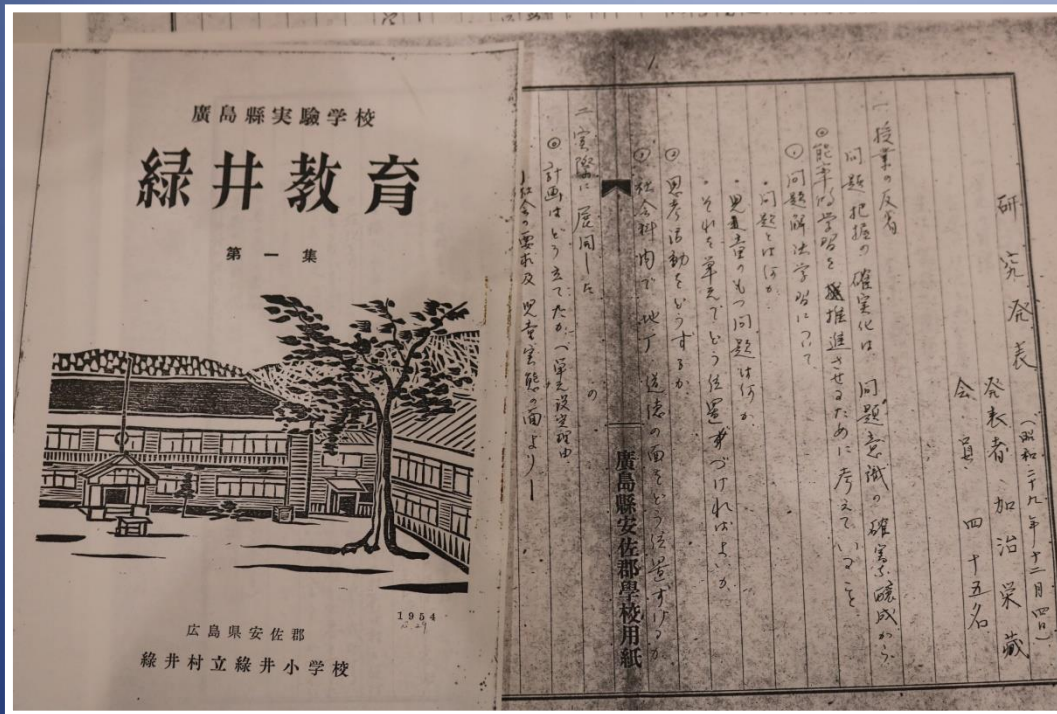 廣島縣実驗学校
緑井教育
第一集
1954
広島県安佐郡
綠井村立綠井小学校
研究発表
(昭和二十九年十二月四日)
発表者 加治栄蔵
会員 四十五名
一 授業の反省
問題把握の確実化は、問題意識の確実な醸成から
◎能率的学習を推進させるために考えていること
①問題解法学習について
・問題とは何か
・児童のもつ問題は何か
・それを単元でどう位置づければよいか
②思考活動をどうするか
③社会科内で地丁 道徳の面をどう位置ずけるか
二 実際に展開した
◎計画はどう立てたか (単元設定の理由
社会の要求及児童実態の面より
廣島縣安佐郡學校用紙